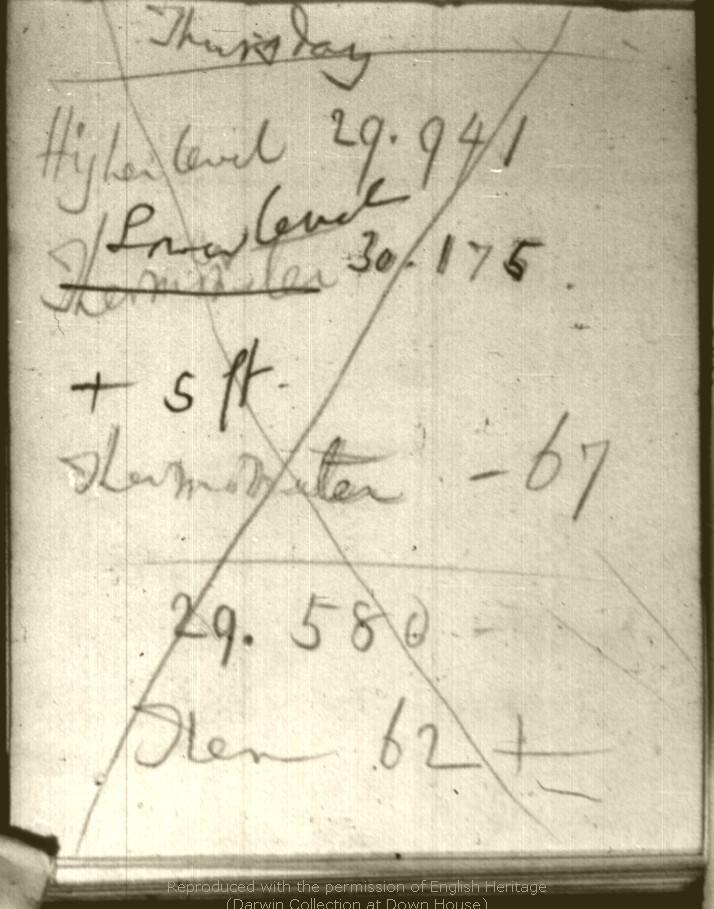 Thursday
Higher level 29.941
Lower level
Thermometer 30.175.
+ 5 ft.
Thermometer - 67
29. 580 -
Ther 62 +
Reproduced with the permission of English Heritage
(Darwin Collection at Down House)